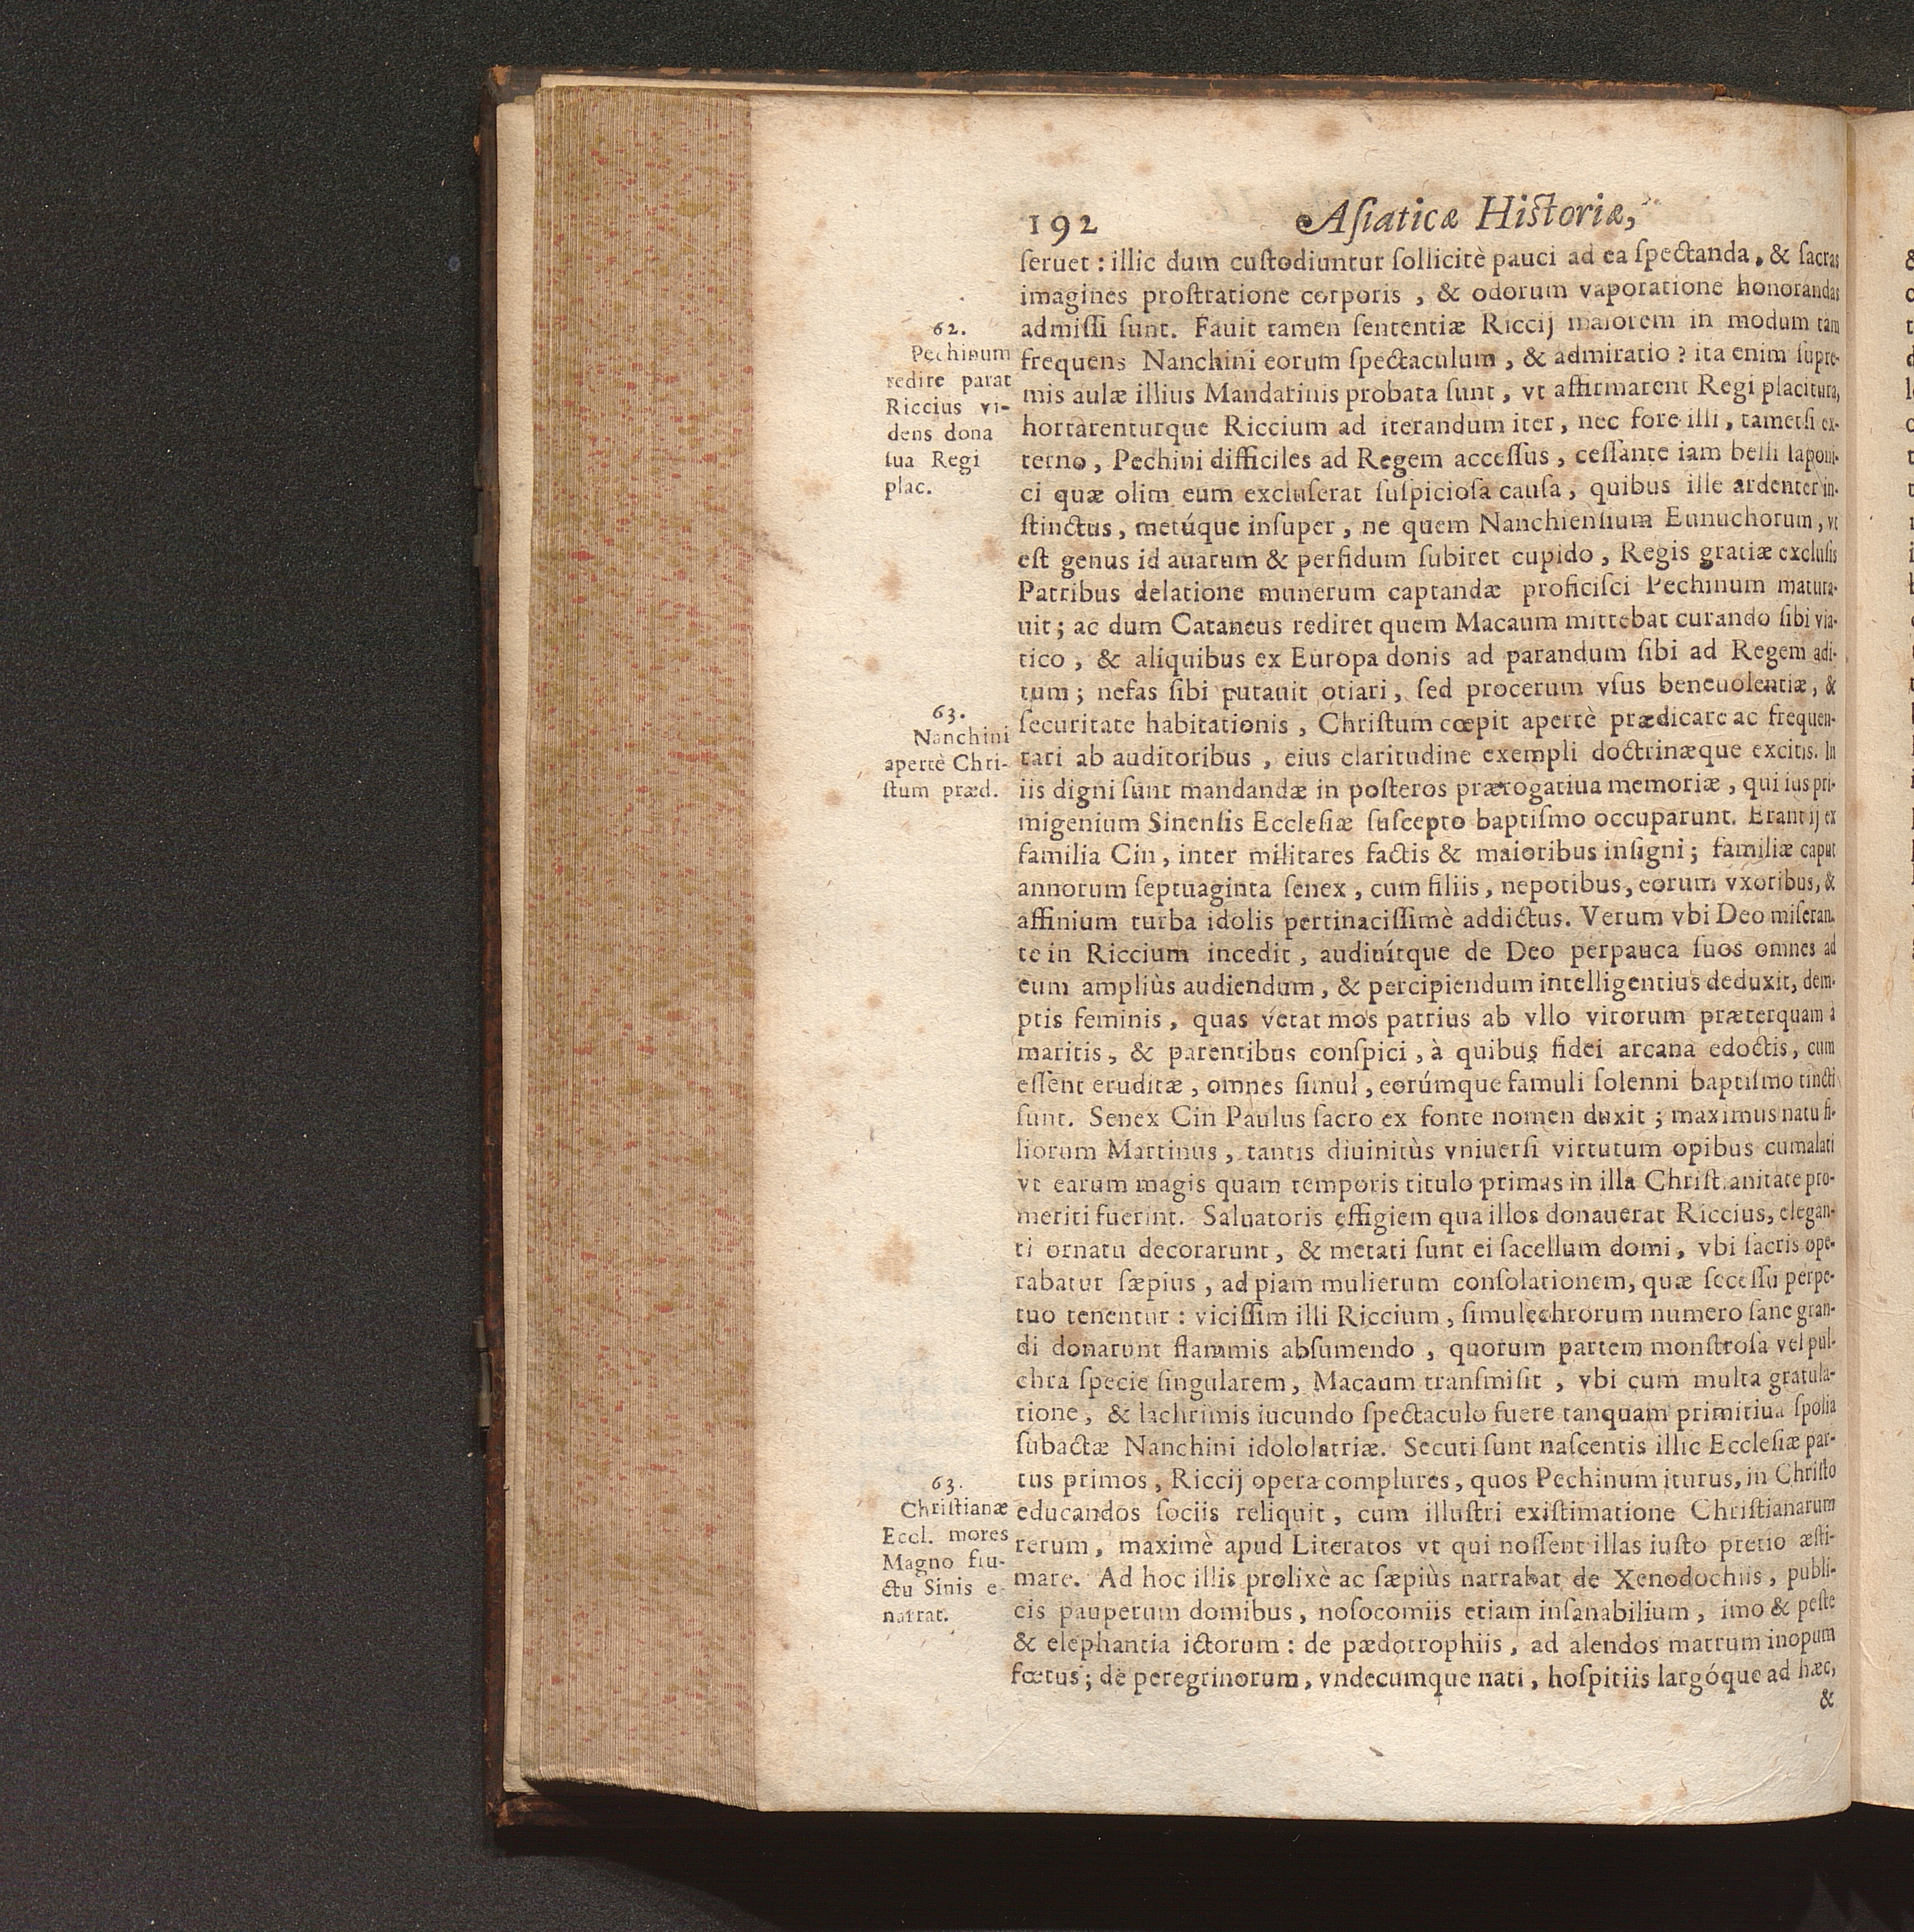 192
Asiaticæ Historiæ,
seruet : illic dum custodiuntur sollicitè pauci ad ea spectanda, & sacras
imagines prostratione corporis , & odorum vaporatione honorandas
admissi sunt. Fauit tamen sententiæ Riccij maiorem in modum tam
frequens Nanchini eorum spectaculum , & admiratio ? ita enim supre-
mis aulæ illius Mandarinis probata sunt , vt affirmarent Regi placitura,
hortarenturque Riccium ad iterandum iter , nec fore illi , tametsi ex-
terno , Pechini difficiles ad Regem accessus , cessante iam belli Iaponi-
ci quæ olim eum excluserat suspiciosa causa , quibus ille ardenter in-
stinctus , metúque insuper , ne quem Nanchiensium Eunuchorum , vt
est genus id auarum & perfidum subiret cupido , Regis gratiæ exclusis
Patribus delatione munerum captandæ proficisci Pechinum matura-
uit ; ac dum Cataneus rediret quem Macaum mittebat curando sibi via-
tico , & aliquibus ex Europa donis ad parandum sibi ad Regem adi-
tum ; nefas sibi putauit otiari , sed procerum vsus beneuolentiæ, &
securitate habitationis , Christum cœpit apertè prædicare ac frequen-
tari ab auditoribus , eius claritudine exempli doctrinæque excitis. In
iis digni sunt mandandæ in posteros prærogatiua memoriæ , qui ius pri-
migenium Sinensis Ecclesiæ suscepto baptismo occuparunt. Erant ij ex
familia Cin , inter militares factis & maioribus insigni ; familiæ caput
annorum septuaginta senex , cum filiis , nepotibus, eorum vxoribus, &
affinium turba idolis pertinacissimè addictus. Verum vbi Deo miseran-
te in Riccium incedit , audiuítque de Deo perpauca suos omnes ad
eum ampliùs audiendum , & percipiendum intelligentius deduxit, dem-
ptis feminis , quas vetat mos patrius ab vllo virorum præterquam à
maritis , & parentibus conspici , à quibus fidei arcana edoctis , cum
essent eruditæ , omnes simul , eorúmque famuli solenni baptismo tincti
sunt. Senex Cin Paulus sacro ex fonte nomen duxit ; maximus natu fi-
liorum Martinus , tantis diuinitùs vniuersi virtutum opibus cumalati
vt earum magis quam temporis titulo primas in illa Christianitate pro-
meriti fuerint. Saluatoris effigiem qua illos donauerat Riccius, elegan-
ti ornatu decorarunt , & metati sunt ei sacellum domi , vbi sacris ope-
rabatur sæpius , ad piam mulierum consolationem, quæ secessu perpe-
tuo tenentur : vicissim illi Riccium , simulechrorum numero sane gran-
di donarunt flammis absumendo , quorum partem monstrosa vel pul-
chra specie singularem , Macaum transmisit , vbi cum multa gratula-
tione , & lachrimis iucundo spectaculo fuere tanquam primitiua spolia
subactæ Nanchini idololatriæ. Secuti sunt nascentis illic Ecclesiæ par-
tus primos , Riccij opera complures , quos Pechinum iturus, in Christo
educandos sociis reliquit , cum illustri existimatione Christianarum
rerum , maximè apud Literatos vt qui nossent illas iusto pretio æsti-
mare. Ad hoc illis prolixè ac sæpiùs narrabat de Xenodochiis , publi-
cis pauperum domibus , nosocomiis etiam insanabilium , imo & peste
& elephantia ictorum : de pædotrophiis , ad alendos matrum inopum
fœtus ; de peregrinorum , vndecumque nati , hospitiis largóque ad hæc,
&
62.
Pechinum
redire parat
Riccius vi-
dens dona
sua Regi
plac.
63.
Nanchini
apertè Chri-
stum præd.
63.
Christianæ
Eccl. mores
Magno fru-
ctu Sinis e-
narrat.